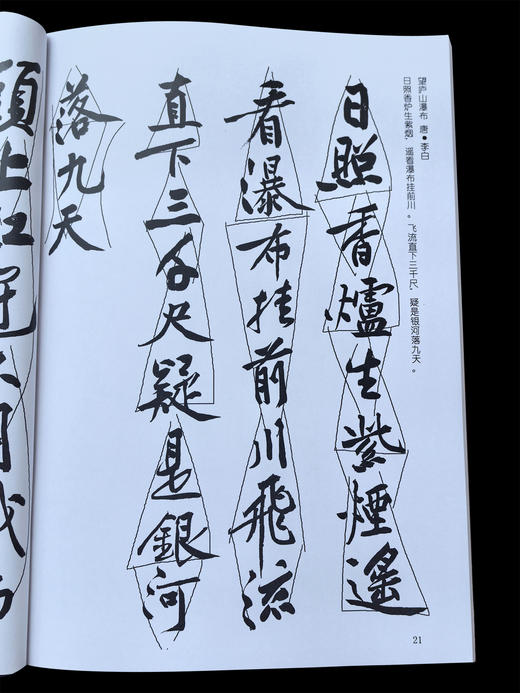 望庐山瀑布 唐·李白
日照香炉生紫烟，遥看瀑布挂前川。飞流直下三千尺，疑是银河落九天。
日照香爐生紫煙遙
看瀑布挂前川飛流
直下三千尺疑是銀河
落九天
21